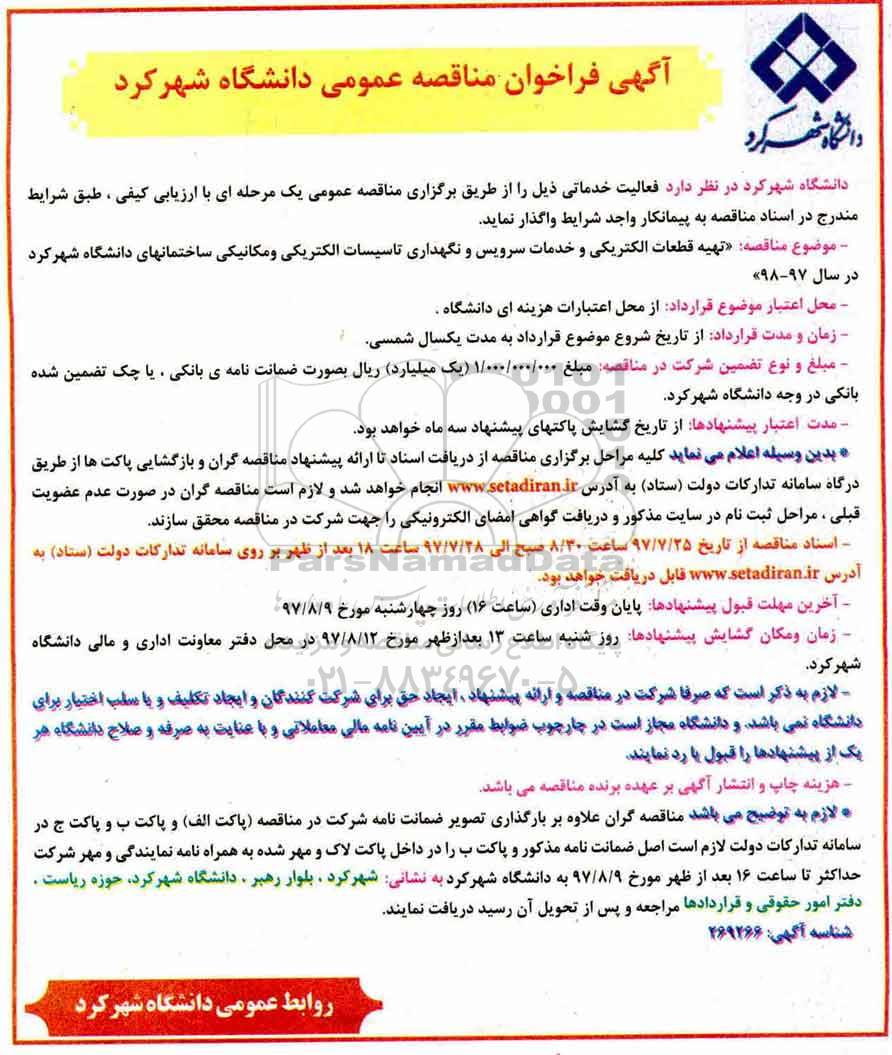 دانشگاه شهرکرد
آگهی فراخوان مناقصه عمومی دانشگاه شهرکرد
دانشگاه شهرکرد در نظر دارد فعالیت خدماتی ذیل را از طریق برگزاری مناقصه عمومی یک مرحله ای با ارزیابی کیفی ، طبق شرایط
مندرج در اسناد مناقصه به پیمانکار واجد شرایط واگذار نماید.
- موضوع مناقصه: «تهیه قطعات الکتریکی و خدمات سرویس و نگهداری تاسیسات الکتریکی ومکانیکی ساختمانهای دانشگاه شهرکرد
در سال ۹۷-۹۸»
- محل اعتبار موضوع قرارداد: از محل اعتبارات هزینه ای دانشگاه .
- زمان و مدت قرارداد: از تاریخ شروع موضوع قرارداد به مدت یکسال شمسی.
- مبلغ و نوع تضمین شرکت در مناقصه: مبلغ ۱/۰۰۰/۰۰۰/۰۰۰ (یک میلیارد) ریال بصورت ضمانت نامه ی بانکی ، یا چک تضمین شده
بانکی در وجه دانشگاه شهرکرد.
- مدت اعتبار پیشنهادها: از تاریخ گشایش پاکتهای پیشنهاد سه ماه خواهد بود.
* بدین وسیله اعلام می نماید کلیه مراحل برگزاری مناقصه از دریافت اسناد تا ارائه پیشنهاد مناقصه گران و بازگشایی پاکت ها از طریق
درگاه سامانه تدارکات دولت (ستاد) به آدرس www.setadiran.ir انجام خواهد شد و لازم است مناقصه گران در صورت عدم عضویت
قبلی ، مراحل ثبت نام در سایت مذکور و دریافت گواهی امضای الکترونیکی را جهت شرکت در مناقصه محقق سازند.
- اسناد مناقصه از تاریخ ۹۷/۷/۲۵ ساعت ۸/۳۰ صبح الی ۹۷/۷/۲۸ ساعت ۱۸ بعد از ظهر بر روی سامانه تدارکات دولت (ستاد) به
آدرس www.setadiran.ir قابل دریافت خواهد بود.
ParsNamadData
- آخرین مهلت قبول پیشنهادها: پایان وقت اداری (ساعت ۱۶) روز چهارشنبه مورخ ۹۷/۸/۹
- زمان ومکان گشایش پیشنهادها: روز شنبه ساعت ۱۳ بعدازظهر مورخ ۹۷/۸/۱۲ در محل دفتر معاونت اداری و مالی دانشگاه
شهرکرد.
۰۲۱-۸۸۳۴۹۶۷۰-۵
- لازم به ذکر است که صرفا شرکت در مناقصه و ارائه پیشنهاد ، ایجاد حق برای شرکت کنندگان و ایجاد تکلیف و یا سلب اختیار برای
دانشگاه نمی باشد. و دانشگاه مجاز است در چارچوب ضوابط مقرر در آیین نامه مالی معاملاتی و با عنایت به صرفه و صلاح دانشگاه هر
یک از پیشنهادها را قبول یا رد نمایند.
- هزینه چاپ و انتشار آگهی بر عهده برنده مناقصه می باشد.
* لازم به توضیح می باشد مناقصه گران علاوه بر بارگذاری تصویر ضمانت نامه شرکت در مناقصه (پاکت الف) و پاکت ب و پاکت ج در
سامانه تدارکات دولت لازم است اصل ضمانت نامه مذکور و پاکت ب را در داخل پاکت لاک و مهر شده به همراه نامه نمایندگی و مهر شرکت
حداکثر تا ساعت ۱۶ بعد از ظهر مورخ ۹۷/۸/۹ به دانشگاه شهرکرد به نشانی: شهرکرد ، بلوار رهبر ، دانشگاه شهرکرد، حوزه ریاست ،
دفتر امور حقوقی و قراردادها مراجعه و پس از تحویل آن رسید دریافت نمایند.
شناسه آگهی: ۲۶۹۲۶۶
روابط عمومی دانشگاه شهرکرد